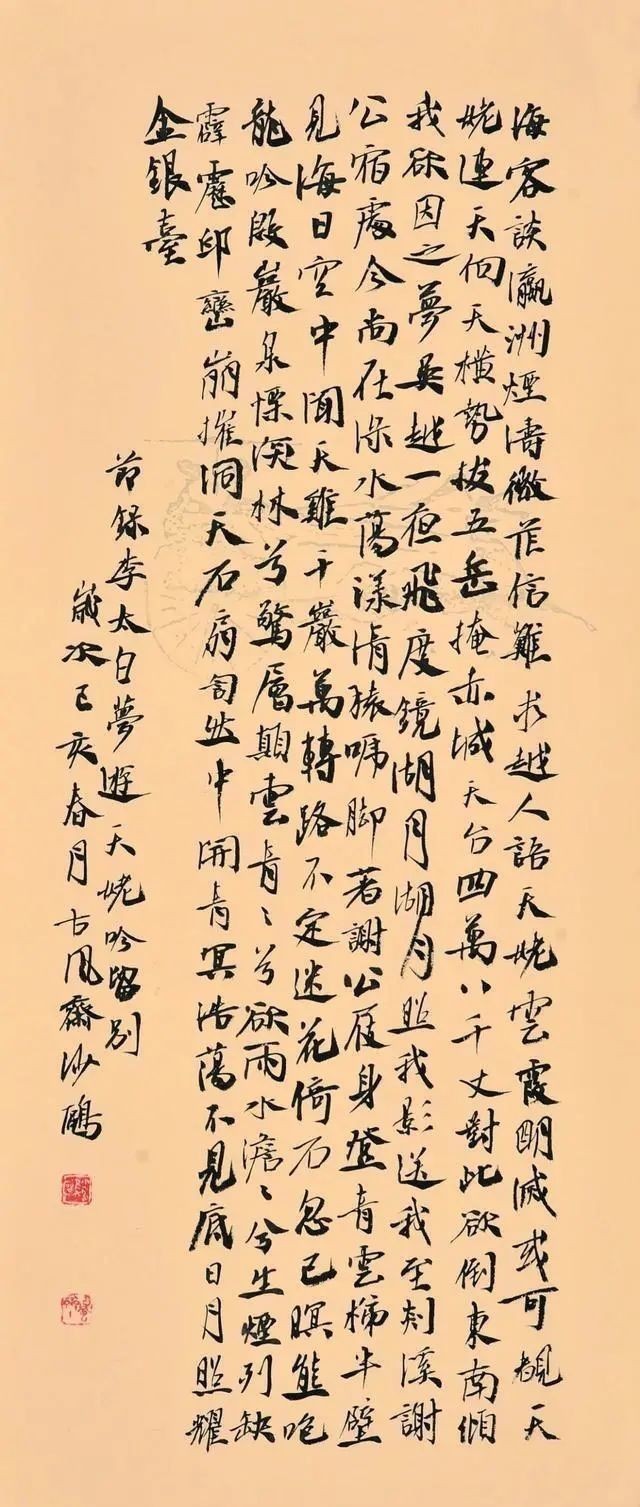 海客談瀛洲煙濤微茫信難求越人語天姥雲霞明滅或可覩天
姥連天向天橫勢拔五岳掩赤城天台四萬八千丈對此欲倒東南傾
我欲因之夢吳越一夜飛度鏡湖月湖月照我影送我至剡溪謝
公宿處今尚在渌水蕩漾清猿啼脚著謝公屐身登青雲梯半壁
見海日空中聞天雞千巖萬轉路不定迷花倚石忽已暝熊咆
龍吟殷巖泉慄深林兮驚層顛雲青々兮欲雨水澹々兮生煙列缺
霹靂邱巒崩摧洞天石扇訇然中開青冥浩蕩不見底日月照耀
金銀臺
節録李太白夢遊天姥吟留別
歲次己亥春月古風齋沙鷗